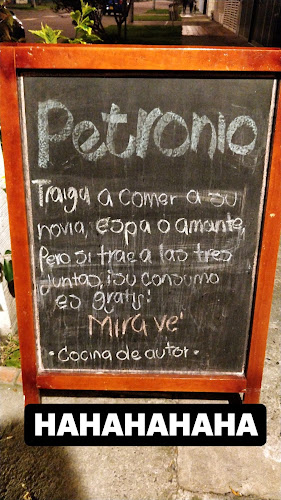 Petronio
Traiga a comer a su
novia, espa o amante,
Pero si trae a las tres
juntas, ¡su consumo
es gratis!
Mira ve'
• Cocina de autor •
HAHAHAHAHA